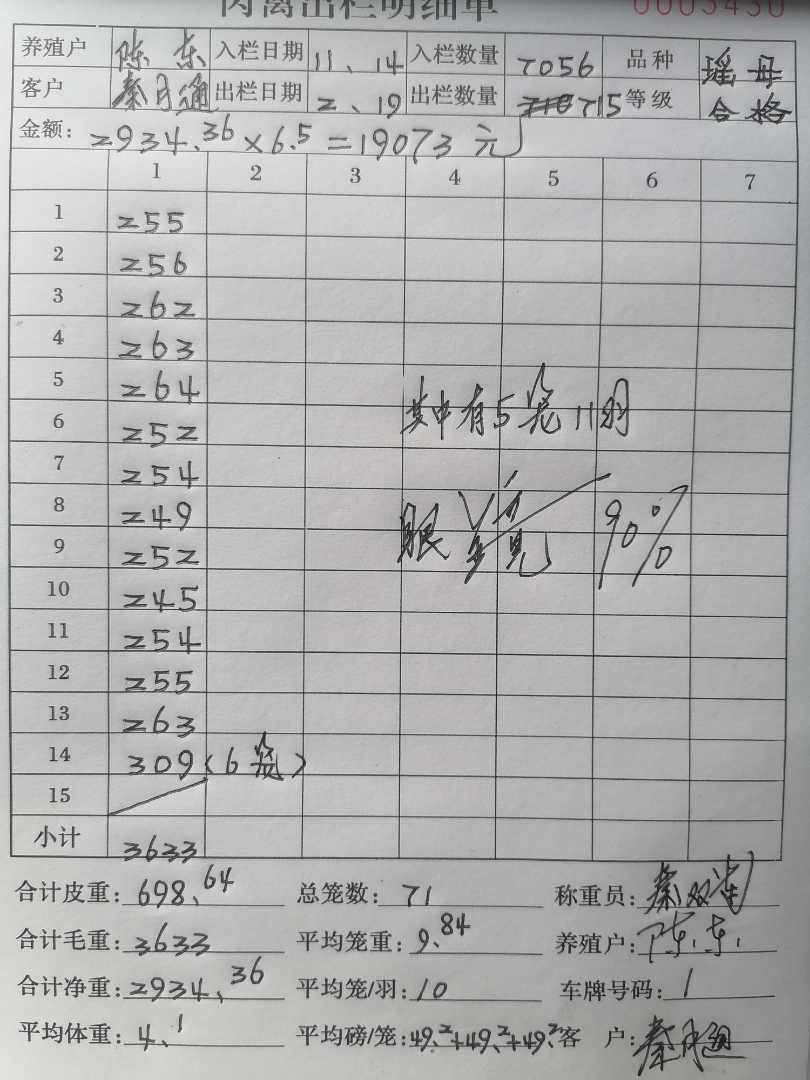 肉禽出栏明细单 0003430
养殖户 陈东 入栏日期 11、14 入栏数量 7056 品种 瑶母
客户 秦月通 出栏日期 2、19 出栏数量 715 等级 合格
金额: 2934.36×6.5=19073元
1 2 3 4 5 6 7
1 255
2 256
3 262
4 263
5 264 其中有5笼11羽
6 252
7 254
8 249 眼 90%
9 252
10 245
11 254
12 255
13 263
14 309(6笼)
15
小计 3633
合计皮重: 698.64 总笼数: 71 称重员:
合计毛重: 3633 平均笼重: 9.84 养殖户: 陈东
合计净重: 2934.36 平均笼/羽: 10 车牌号码: 1
平均体重: 4.1 平均磅/笼: 49.2+49.2+49.2 客户: 秦月通